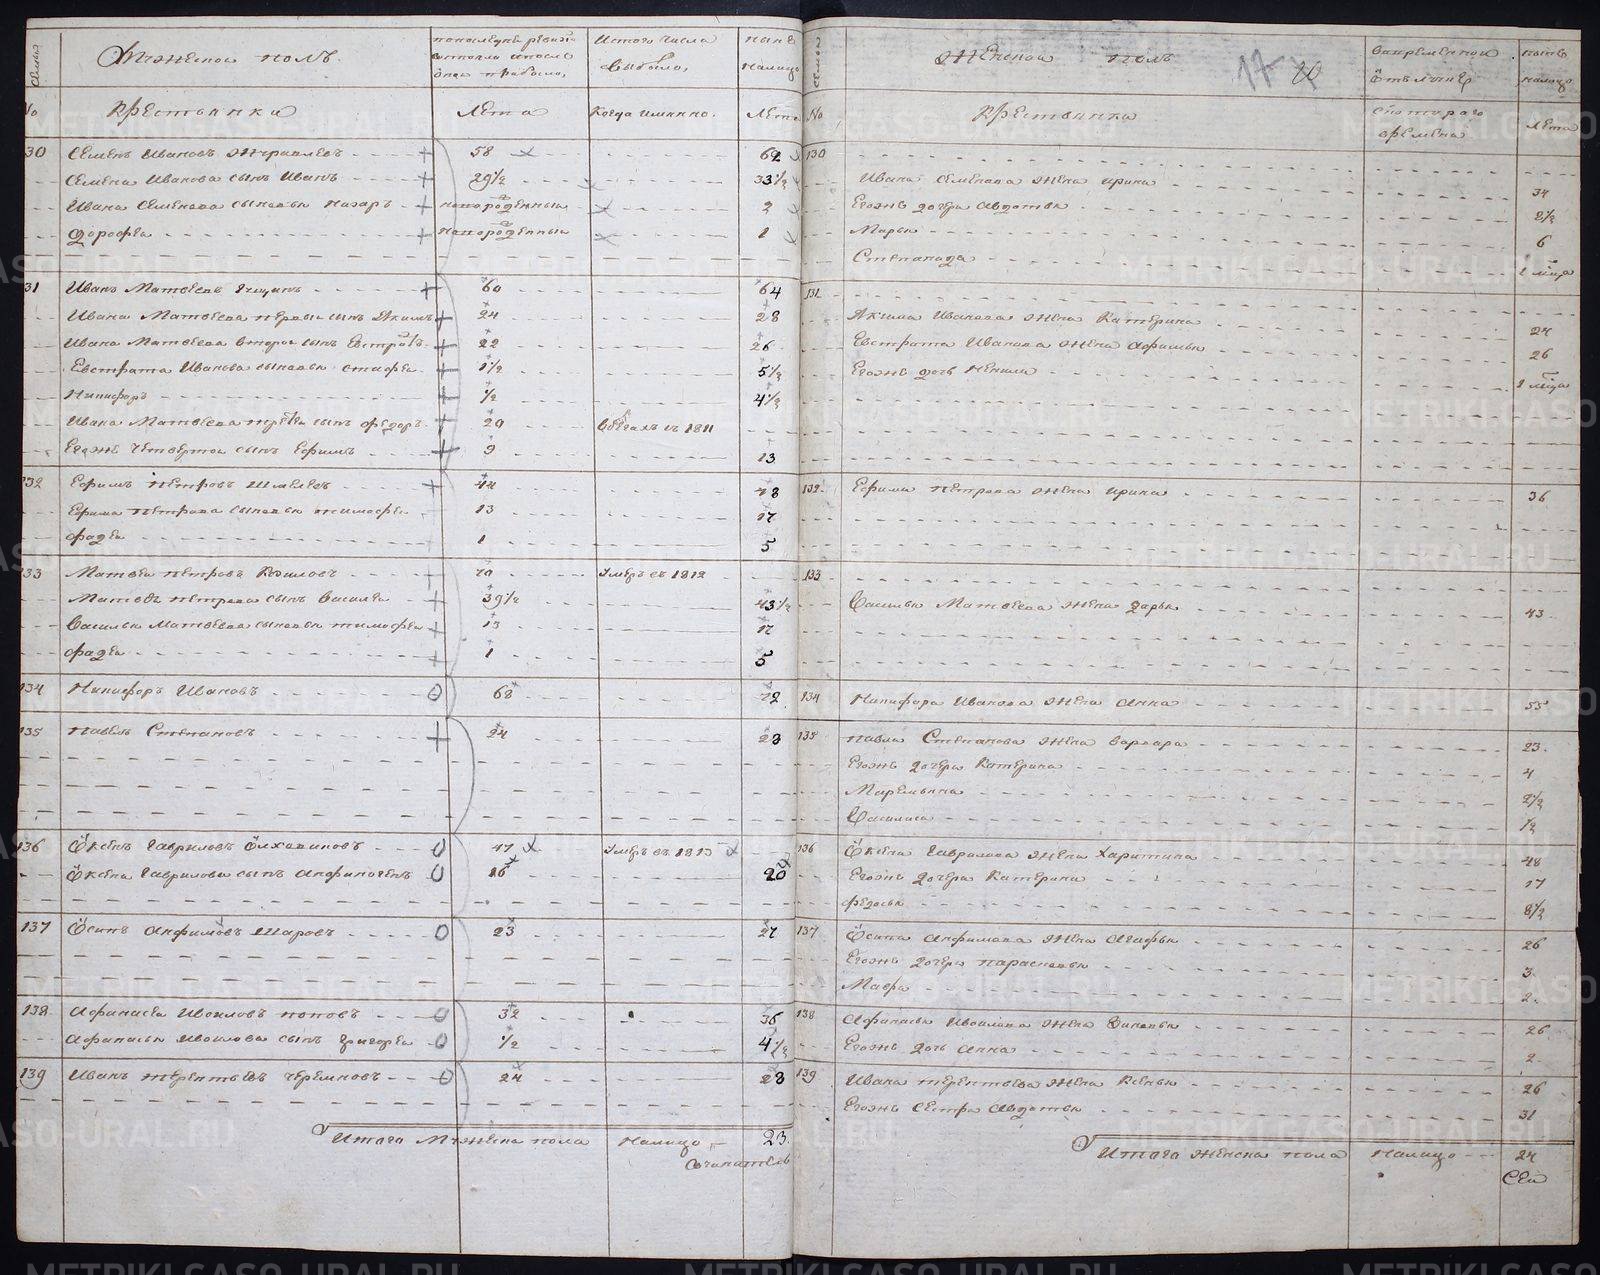 семья
Мужеской полъ.
Изтого числа
выбыло,
ныне
налицо
№
Крестьянки
Лета
Когда имянно.
Лета
30 Семенъ Ивановъ Журавлевъ + 58 62
Семена Иванова сынъ Иванъ + 29½ 33½
Ивана Семенова сыновья Назаръ + новорожденный 2
Дорофеи + новорожденный 1
31 Иванъ Матвеевъ + 60 64
Ивана Матвеева первыи сынъ Акимъ + 24 28
Ивана Матвеева второи сынъ Евстратъ + 22 26
Евстрата Иванова сыновья + 1½ 5½
Никифоръ + ½ 4½
Ивана Матвеева третеи сынъ Федоръ + 20 в 1811
Егожъ четвертои сынъ Ефимъ + 9 13
132 Ефимъ Петровъ + 44 48
Ефима Петрова сыновья Тимофеи 13 17
Фадеи 1 5
33 Матвеи Петровъ 70 умръ въ 1812
Матвея Петрова сынъ Василеи + 39½ 43½
Василья Матвеева сыновья Тимофеи + 13 17
Фадеи + 1 5
134 Никифоръ Ивановъ 68 72
135 Павелъ Степановъ + 24 28
136 Гавриловъ 47 умръ въ 1813
Гаврилова сынъ Анфиногенъ 16 20
137 Осипъ Анфимовъ Шаровъ 23 27
138 Афанасеи Ивоиловъ Поповъ 32 36
Афанасья Ивоилова сынъ Григореи ½ 4½
139 Иванъ Терентьевъ Черемновъ 24 28
Итого Мужеска пола Налицо 23
семья
Женской полъ
17 20
Вовременной
отлучке
ныне
налицо
№
Крестьянка
Скотораго
времени
Лета
130
Ивана Семенова жена Ирина 34
Егожъ дочери Авдотья 2½
Марья 6
Степанида
131
Акима Иванова жена Катерина 24
Евстрата Иванова жена Афимья 26
Егожъ дочь Ненила
132 Ефима Петрова жена Ирина 36
133
Василья Матвеева жена Дарья 43
134 Никифора Иванова жена Анна 55
135 Павла Степанова жена Варвара 23
Егожъ дочери Катерина 4
Маремьяна 2½
Василиса ½
136 Гаврилова жена Харитина 48
Егожъ дочери Катерина 17
Федосья 8½
137 Осипа Анфимова жена Агафья 26
Егожъ дочери Парасковья 3
Мавра 2
138 Афанасья Ивоилова жена Зиновья 26
Егожъ дочь Анна 2
139 Ивана Терентьева жена Ксенья 26
Егожъ сестра Авдотья 31
Итого женска пола Налицо 24
METRIKI.GASO-URAL.RU